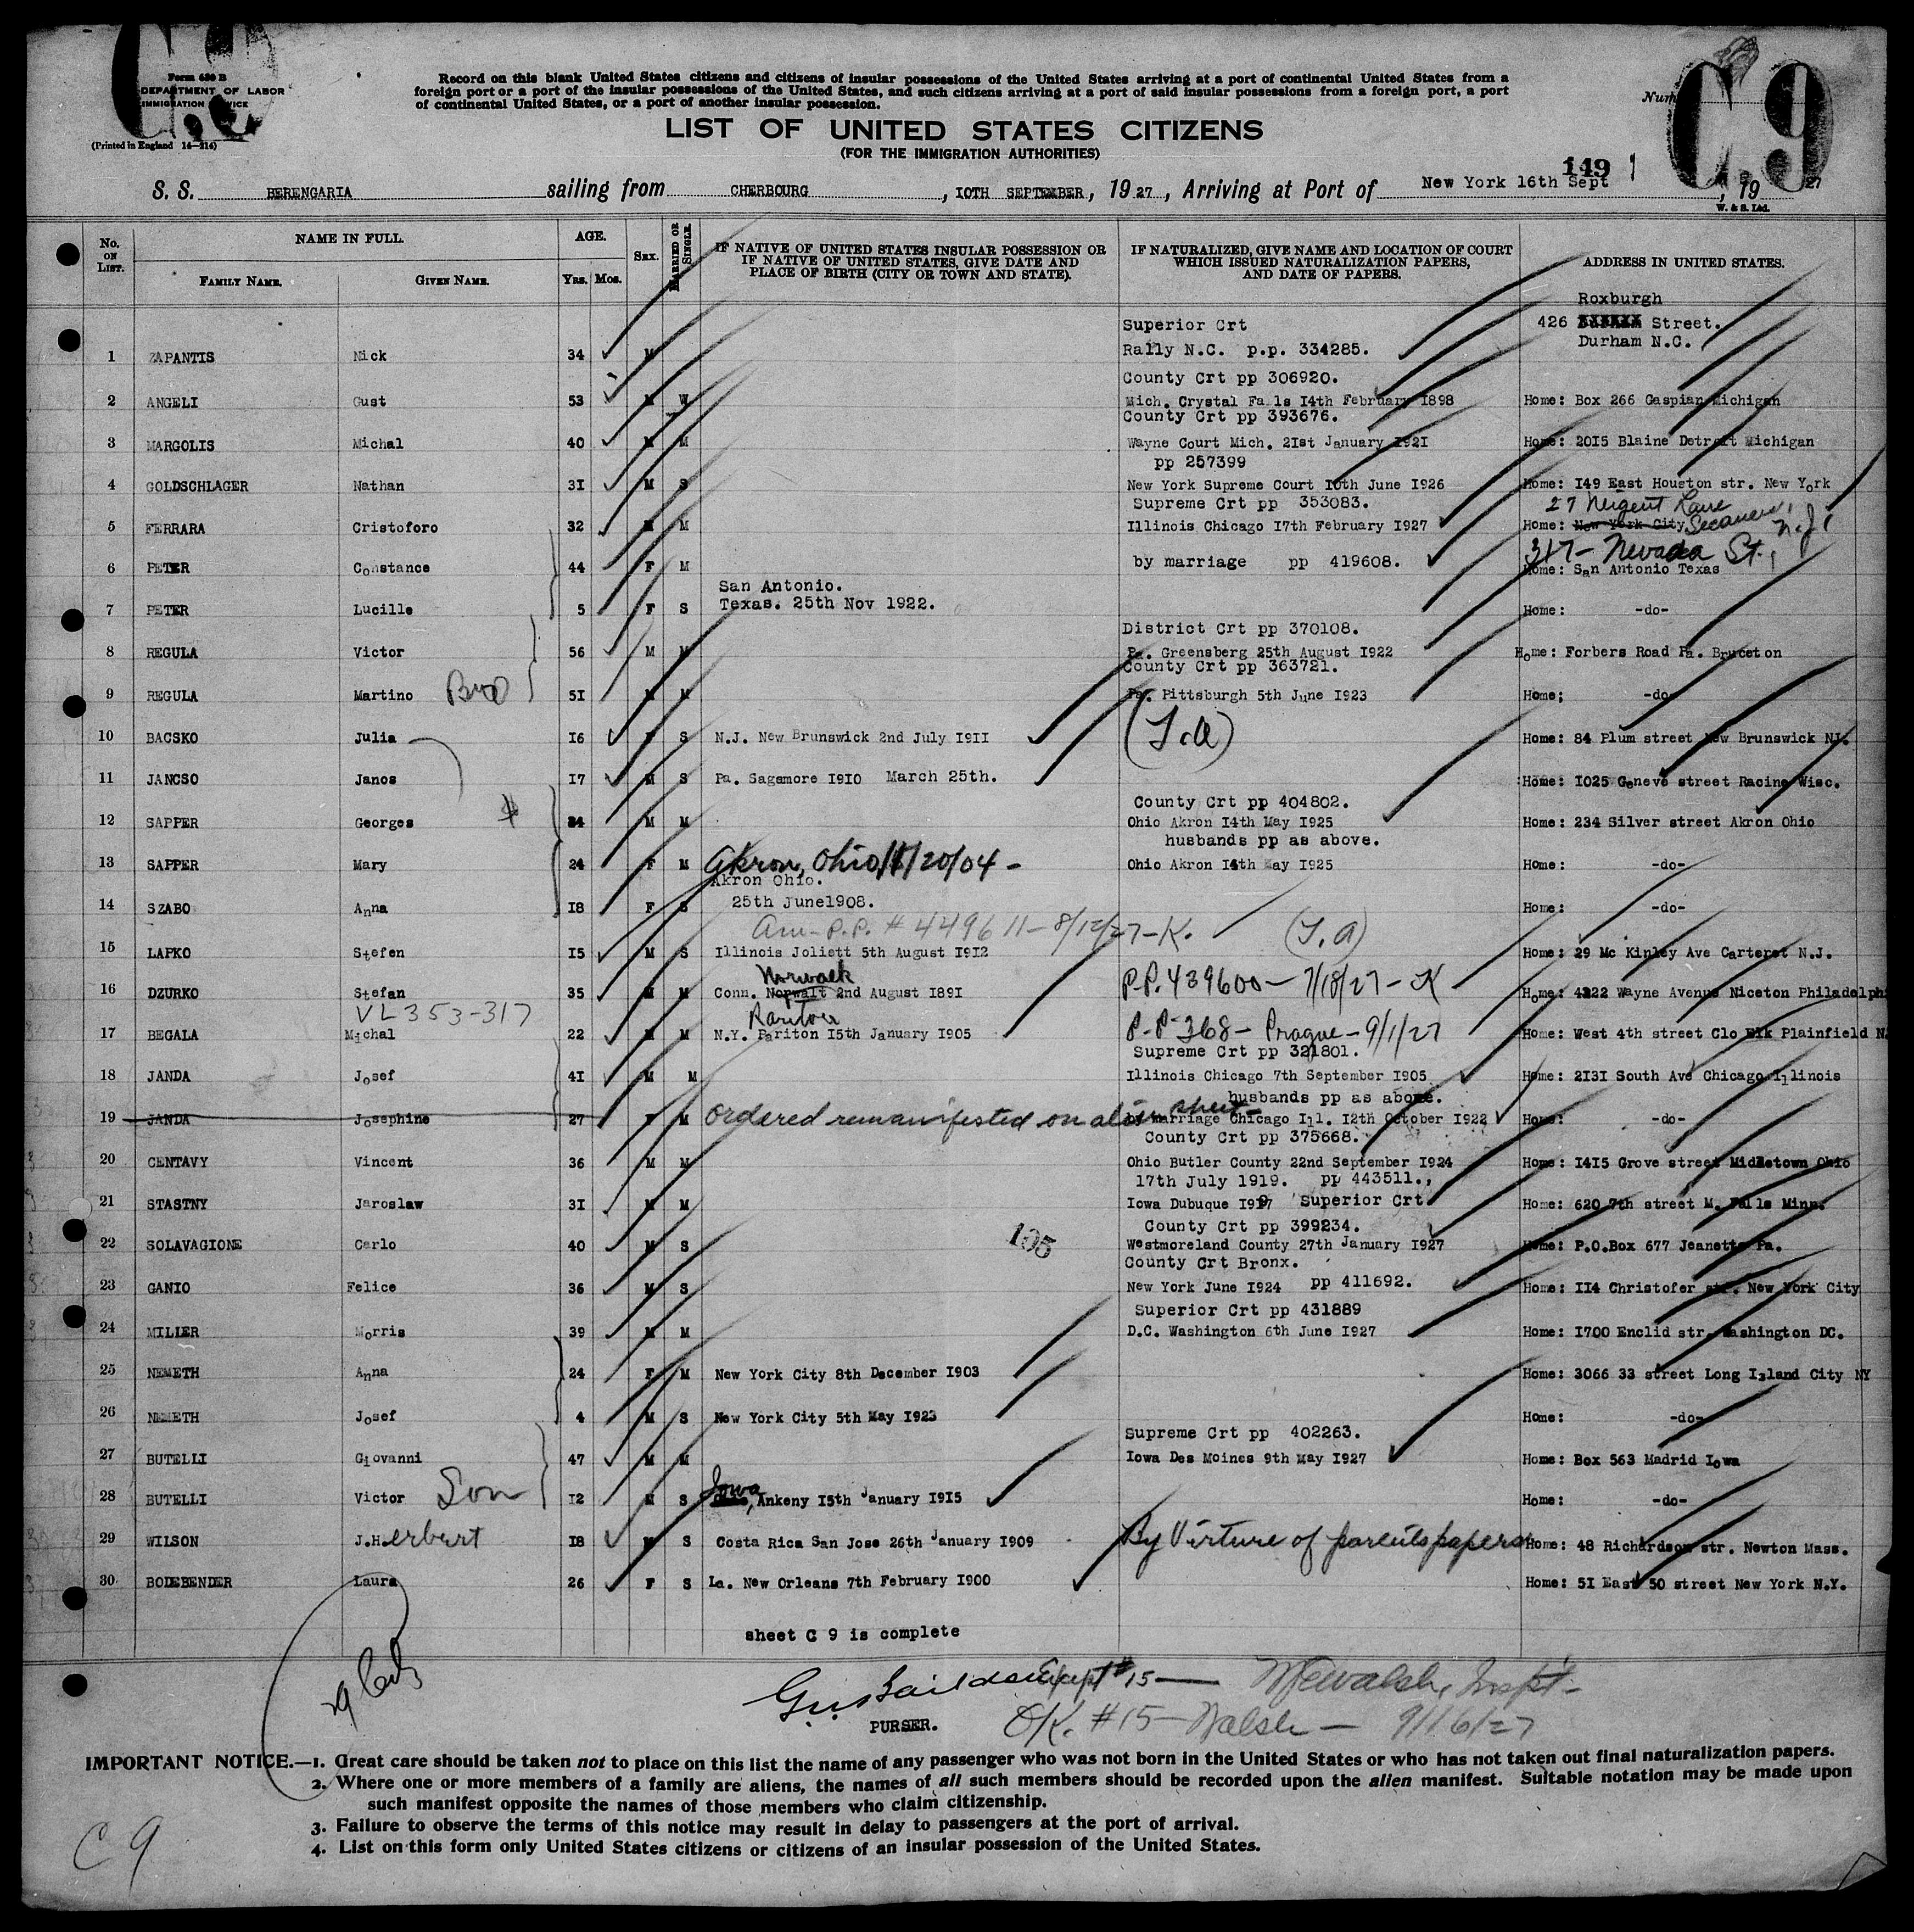 C 9
Form 630 B
DEPARTMENT OF LABOR
IMMIGRATION SERVICE
(Printed in England 14—214)
Record on this blank United States citizens and citizens of insular possessions of the United States arriving at a port of continental United States from a
foreign port or a port of the insular possessions of the United States, and such citizens arriving at a port of said insular possessions from a foreign port, a port
of continental United States, or a port of another insular possession.
C 9
LIST OF UNITED STATES CITIZENS
(FOR THE IMMIGRATION AUTHORITIES)
149
S. S. BERENGARIA sailing from CHERBOURG, IOTH SEPTEMBER, 1927, Arriving at Port of New York 16th Sept, 1927
W. & S. Ltd.
No. ON LIST. NAME IN FULL. AGE. SEX. MARRIED OR SINGLE. IF NATIVE OF UNITED STATES INSULAR POSSESSION OR IF NATIVE OF UNITED STATES, GIVE DATE AND PLACE OF BIRTH (CITY OR TOWN AND STATE). IF NATURALIZED, GIVE NAME AND LOCATION OF COURT WHICH ISSUED NATURALIZATION PAPERS, AND DATE OF PAPERS. ADDRESS IN UNITED STATES.
FAMILY NAME. GIVEN NAME. YRS. MOS.
Roxburgh
Superior Crt 426 Street.
1 ZAPANTIS Nick 34 M Rally N.C. p.p. 334285. Durham N.C.
County Crt pp 306920.
2 ANGELI Gust 53 M W Mich. Crystal Falls I4th February 1898 Home: Box 266 Gaspian Michigan
County Crt pp 393676.
3 MARGOLIS Michal 40 M M Wayne Court Mich. 2Ist January I92I Home: 20I5 Blaine Detroit Michigan
pp 257399
4 GOLDSCHLAGER Nathan 3I M S New York Supreme Court I0th June I926 Home: I49 East Houston str. New York
Supreme Crt pp 353083. 27 Nugent Lane
5 FERRARA Cristoforo 32 M M Illinois Chicago I7th February I927 Home: New York City N.J.
317- Nevada St.,
6 PETER Constance 44 F M by marriage pp 419608. Home: San Antonio Texas
San Antonio.
7 PETER Lucille 5 F S Texas. 25th Nov 1922. Home: -do-
District Crt pp 370108.
8 REGULA Victor 56 M M Pa. Greensberg 25th August I922 Home: Forbers Road Pa. Bruceton
County Crt pp 363721.
9 REGULA Martino Bro 5I M M Pa. Pittsburgh 5th June I923 Home; -do-
10 BACSKO Julia I6 F S N.J. New Brunswick 2nd July I9II (T.A) Home: 84 Plum street New Brunswick NJ.
11 JANCSO Janos I7 M S Pa. Sagamore I9I0 March 25th. Home: I025 Geneve street Racine Wisc.
County Crt pp 404802.
12 SAPPER Georges 34 M M Ohio Akron I4th May I925 Home: 234 Silver street Akron Ohio
husbands pp as above.
13 SAPPER Mary 24 F M Akron, Ohio, /20/04 - Ohio Akron I4th May I925 Home: -do-
Akron Ohio.
14 SZABO Anna I8 F S 25th June1908. Home: -do-
Am-P.P. # 449611-8/12/27-K. (T.A)
15 LAPKO Stefen I5 M S Illinois Joliett 5th August I9I2 Home: 29 Mc Kinley Ave Carteret N.J.
Norwalk
16 DZURKO Stefan 35 M M Conn. Norwalt 2nd August I89I P.P. 439600- 7/18/27-K Home: 4322 Wayne Avenue Niceton Philadelphi
VL 353-317 Rariton
17 BEGALA Michal 22 M M N.Y. Pariton I5th January I905 P-P 368- Prague-9/1/27 Home: West 4th street Clo Elk Plainfield N.
Supreme Crt pp 321801.
18 JANDA Josef 4I M M Illinois Chicago 7th September I905 Home: 2I3I South Ave Chicago Illinois
husbands pp as above.
19 JANDA Josephine 27 F M Ordered remanifested on alien sheet- by marriage Chicago Ill. I2th October I922 Home: -do-
County Crt pp 375668.
20 CENTAVY Vincent 36 M M Ohio Butler County 22nd September I924 Home: I4I5 Grove street Midletown Ohio
17th July 1919. pp 443511.,
21 STASTNY Jaroslaw 3I M M Iowa Dubuque Superior Crt Home: 620 7th street M. Falls Minn.
County Crt pp 399234.
195
22 SOLAVAGIONE Carlo 40 M S Westmoreland County 27th January I927 Home: P.O.Box 677 Jeanette Pa.
County Crt Bronx.
23 GANIO Felice 36 M S New York June I924 pp 411692. Home: II4 Christofer str. New York City
Superior Crt pp 431889
24 MILLER Morris 39 M M D.C. Washington 6th June I927 Home: I700 Enclid str. Washington DC.
25 NEMETH Anna 24 F M New York City 8th December I903 Home: 3066 33 street Long Island City NY
26 NEMETH Josef 4 M S New York City 5th May I923 Home: -do-
Supreme Crt pp 402263.
27 BUTELLI Giovanni 47 M M Iowa Des Moines 9th May I927 Home: Box 563 Madrid Iowa
28 BUTELLI Victor Son I2 M S Iowa, Ankeny I5th January I9I5 Home: -do-
29 WILSON J.Herbert I8 M S Costa Rica San Jose 26th January I909 By Virture of parents papers Home: 48 Richardson str. Newton Mass.
30 BODEBENDER Laura 26 F S La. New Orleans 7th February I900 Home: 5I East 50 street New York N.Y.
sheet C 9 is complete
Except #15— Walsh, Inspt-
PURSER. O/K. #15-Walsh- 9/16/27
IMPORTANT NOTICE.—1. Great care should be taken not to place on this list the name of any passenger who was not born in the United States or who has not taken out final naturalization papers.
2. Where one or more members of a family are aliens, the names of all such members should be recorded upon the alien manifest. Suitable notation may be made upon
such manifest opposite the names of those members who claim citizenship.
3. Failure to observe the terms of this notice may result in delay to passengers at the port of arrival.
4. List on this form only United States citizens or citizens of an insular possession of the United States.
C 9